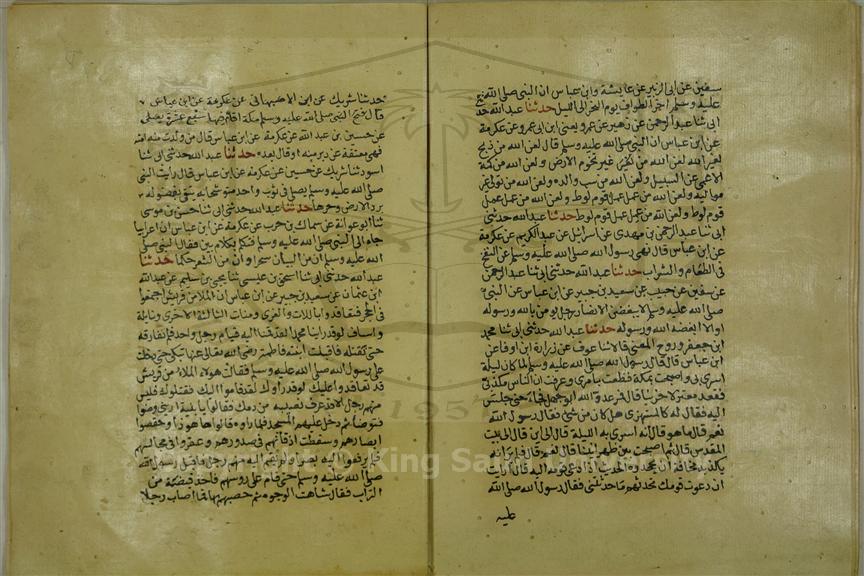 سفين عن ابي الزبير عن عايشة وابن عباس ان النبي صلى الله
عليه وسلم اخر الطواف يوم النحر الى الليل حدثنا عبد الله حد
ابي ثنا عبد الرحمن عن زهير عن عمرو يعني ابن ابي عمرو عن عكرمة
عن ابن عباس ان النبي صلى الله عليه وسلم قال لعن الله من ذبح
لغير الله لعن الله من غير تخوم الارض ولعن الله من كمه
الاعمى عن السبيل ولعن الله من سب والده ولعن الله من تولى غير
مواليه ولعن الله من عمل عمل قوم لوط ولعن الله من عمل عمل
قوم لوط ولعن الله من عمل عمل قوم لوط حدثنا عبد الله حدثني
ابي ثنا عبد الرحمن بن مهدي عن اسرائيل عن عبد الكريم عن عكرمة
عن ابن عباس قال نهى رسول الله صلى الله عليه وسلم عن النفخ
في الطعام والشراب حدثنا عبد الله حدثني ابي ثنا عبد الرحمن
عن سفين عن حبيب عن سعيد بن جبير عن ابن عباس عن النبي
صلى الله عليه وسلم لا يبغض الانصار رجل يومن بالله ورسوله
او الا ابغضه الله ورسوله حدثنا عبد الله حدثني ابي ثنا محمد
ابن جعفر وروح المعنى قالا ثنا عوف عن زرارة ابن اوفا عن
ابن عباس قال قال رسول الله صلى الله عليه وسلم لما كان ليلة
اسري بي واصبحت بمكة فظعت بامري وعرفت ان الناس مكذبي
فقعد معتزلا حزينا قال فمر عدو الله ابو جهل فجاء حتى جلس
اليه فقال له كالمستهزئ هل كان من شي فقال رسول الله
نعم قال ما هو قال انه اسري به الليلة قال الى اين قال الى بيت
المقدس قال ثم اصبحت بين ظهرانينا قال نعم قال فلم ير انه
يكذبه مخافة ان يجحده الحديث اذا دعى قومه اليه قال ارايت
ان دعوت قومك تحدثهم ما حدثتني فقال رسول الله صلى الله
عليه
حدثنا شريك عن ابن الاصبهاني عن عكرمة عن ابن عباس
قال فتح النبي صلى الله عليه وسلم مكة اقام فيها سبع عشرة يصلي
عن حسين بن عبد الله عن عكرمة عن ابن عباس قال من ولدت منه امته
فهي معتقة عن دبر منه او قال بعده حدثنا عبد الله حدثني ابي ثنا
اسود ثنا شريك عن حسين عن عكرمة عن ابن عباس قال رايت النبي
صلى الله عليه وسلم يصلي في ثوب واحد متوشحا به يتقي بفضوله
برد الارض وحرها حدثنا عبد الله حدثني ابي ثنا حسن بن موسى
ثنا ابو عوانة عن سماك بن حرب عن عكرمة عن ابن عباس ان اعرابيا
جاء الى النبي صلى الله عليه وسلم فتكلم بكلام بين فقال النبي صلى
الله عليه وسلم ان من البيان سحرا وان من الشعر حكما حدثنا
عبد الله حدثني ابي ثنا اسحق بن عيسى ثنا يحيى بن سليم عن عبد الله
ابن عثمان عن سعيد بن جبير عن ابن عباس ان الملا من قريش اجتمعوا
في الحجر فتعاقدوا باللات والعزى ومنات الثالثة الاخرى ونايلة
واساف لو قد راينا محمدا لقد قمنا اليه قيام رجل واحد فلم نفارقه
حتى نقتله فاقبلت ابنته فاطمة رضي الله تعالى عنها تبكي حتى دخلت
على رسول الله صلى الله عليه وسلم فقالت هولاء الملاء من قريش
قد تعاقدوا عليك لو قد راوك لقد قاموا اليك فقتلوك فليس
منهم رجل الا قد عرف نصيبه من دمك فقال يا بنية اريني وضوا
فتوضا ثم دخل عليهم المسجد فلما راوه قالوا ها هو ذا وخفضوا
ابصارهم وسقطت اذقانهم في صدورهم وعقروا في مجالسهم
فلم يرفعوا اليه بصرا ولم يقم اليه منهم رجل فاقبل رسول الله
صلى الله عليه وسلم حتى قام على روسهم فاخذ قبضة من
التراب فقال شاهت الوجوه ثم حصبهم بها فما اصاب رجلا